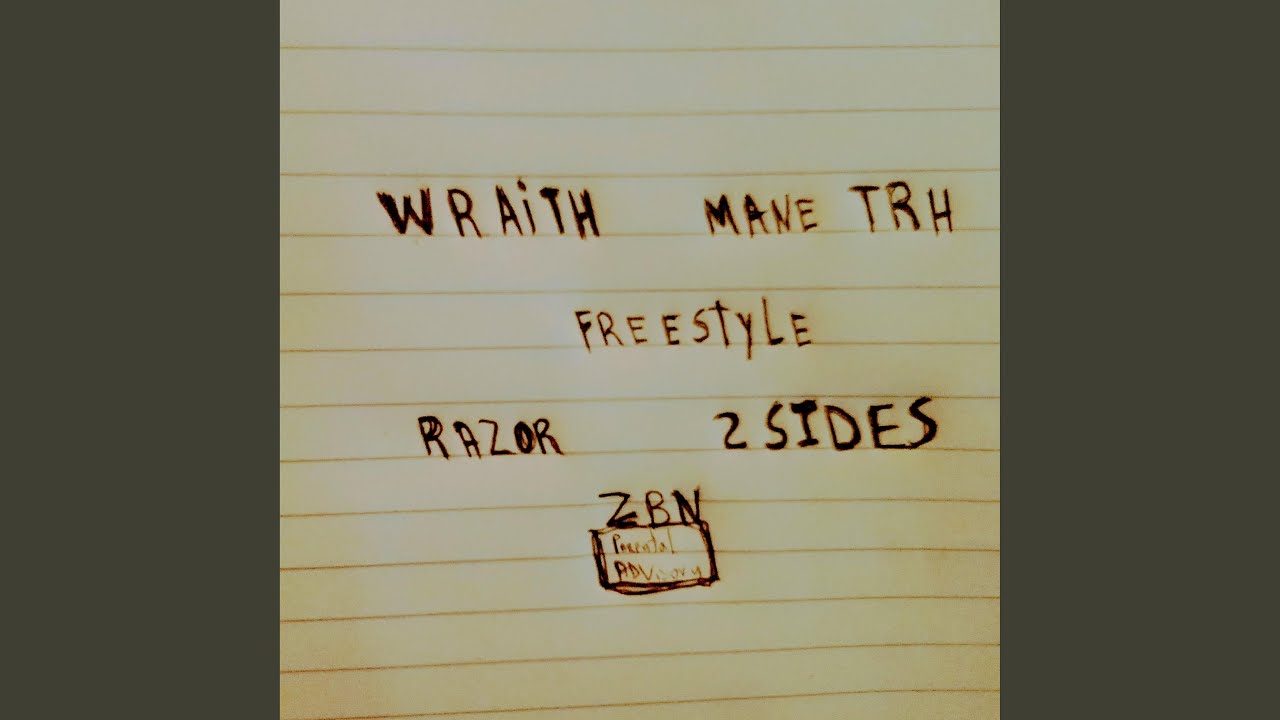 WRAiTH MANE TRH
FREEStyLE
RAZOR 2 SIDES
ZBN
Parental
ADVisory